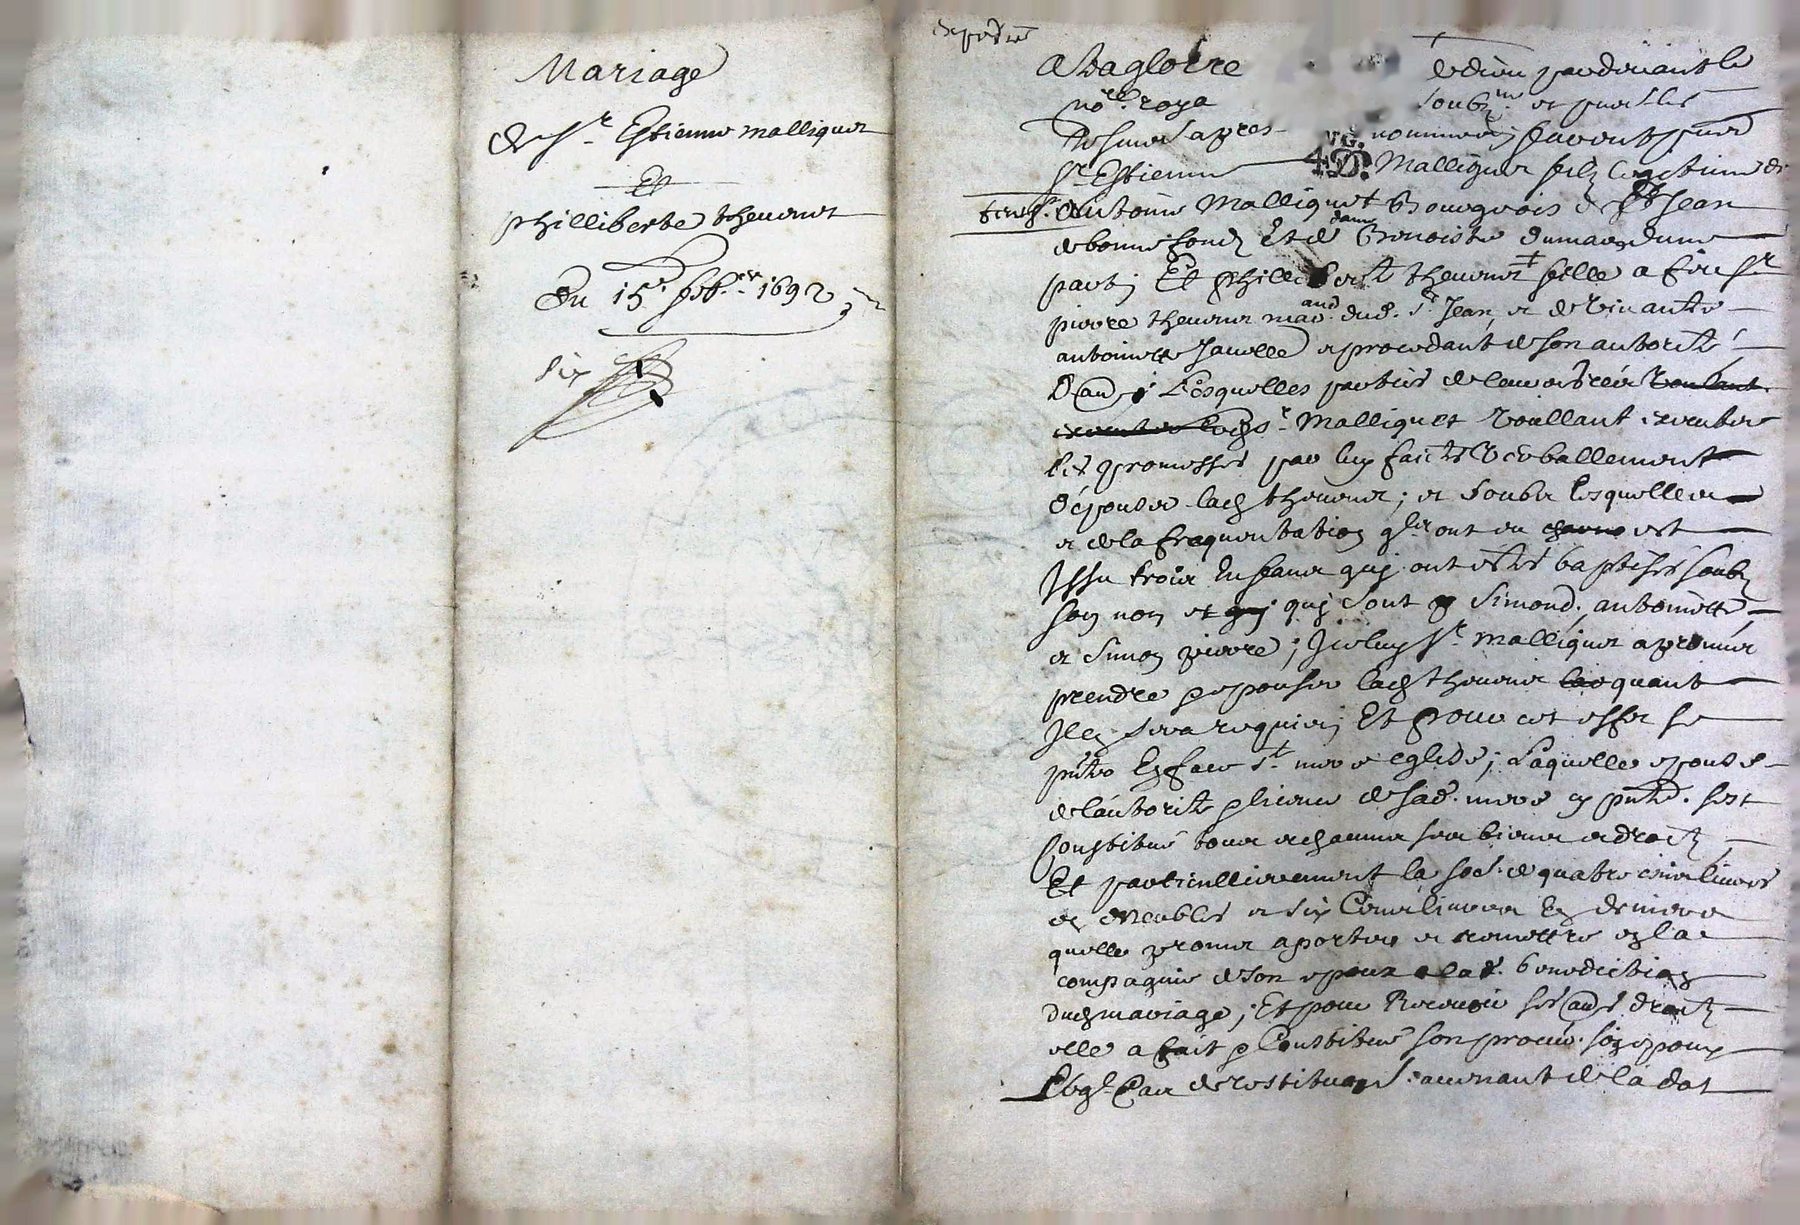 Mariage
de Sr. Estienne Malliquet
Et
Philliberte thevenet
Du 15e. febr. 1692
expediée
A la gloire de dieu pardevant le
no.re roya soubz.né et par les
tesmoins apres nommes; furent pnt
Sr. Estienne Malliquet filz legitime de
Antoine Malliquet Bourgeois de St Jean
de bonnefond Et de dame Benoiste dumas dune
part; Et Philliberte thevenet fille a feu Sr
pierre thevenet march. dud. St. Jean, et de vivante
antoinette Javelle et procedant de son autorité
D'au; Lesquelles parties voulant
executer Led. Sr. Malliquet voullant executer
les promesses par luy faictes verballement
d'épouser lad. thevenet; et soubz lesquelles
et de la frequentation qlz ont eu est
Issu trois Enfans quj ont estés baptisés soubz
son nom et quj sont Simond, antoinette,
et Simon pierre; Iceluy Sr. Malliquet a promis
prendre et espouser lad. thevenet quant
Il en sera requis; Et pour cet effet se
pnter En face Ste. mere eglise; Laquelle epouse
de l'autorité et licence de sad. mere cy pnte. sest
Constitué tous et chacuns ses biens et droits
Et particullierement la so. de quatre cens livres
en meubles et six Cens livres En deniers
quelle promet aporter et remettre en la
compagnie de son epoux a la benediction
dud. mariage; Et pour Recevoir sesd. droits
elle a fait et Constitué son procur. son epoux
Oblgé. Par de restituer Savenant de la dot